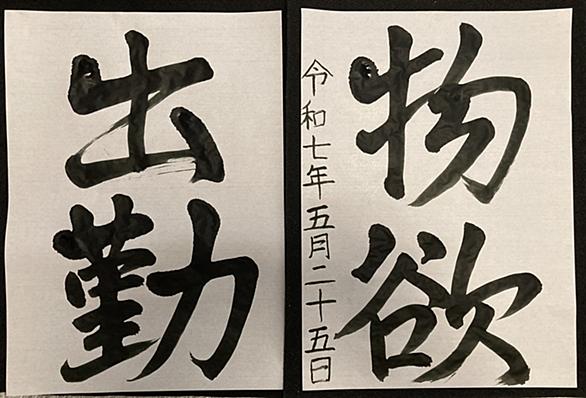 物欲
令和七年五月二十五日
出勤